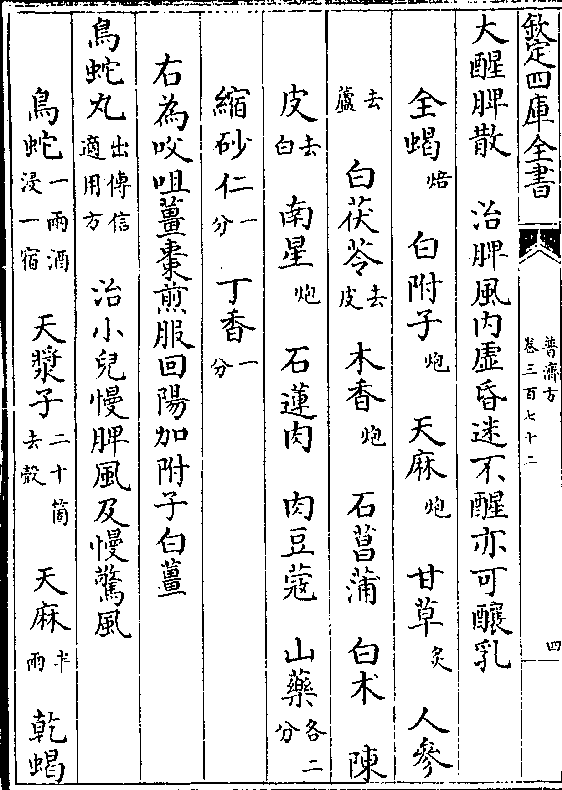 欽定四庫全書
普濟方
卷三百七十二
四
大醒脾散 治脾風内虚昏迷不醒亦可釀乳
全蝎焙 白附子炮 天麻炮 甘草炙 人參
去蘆 白茯苓去皮 木香炮 石菖蒲 白术 陳
皮去白 南星炮 石蓮肉 肉豆蔻 山藥各二分
縮砂仁一分 丁香一分
右為㕮咀薑棗煎服回陽加附子白薑
烏蛇丸出傳信適用方 治小兒慢脾風及慢驚風
烏蛇一兩酒浸一宿 天漿子二十箇去殼 天麻半兩 乾蝎